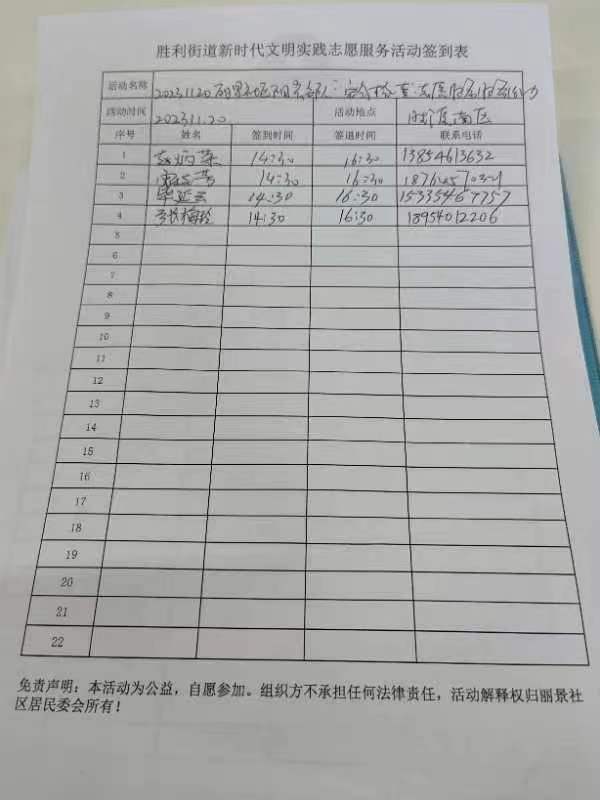 胜利街道新时代文明实践志愿服务活动签到表
活动名称 20231120丽景社区
活动时间 2023.11.20 活动地点 南区
序号 姓名 签到时间 签退时间 联系电话
1 赵炳荣 14:30 16:30 13854613632
2 14:30 16:30
3 毕延云 14:30 16:30 15335467757
4 张梅玲 14:30 16:30 18954012206
5
6
7
8
9
10
11
12
13
14
15
16
17
18
19
20
21
22
免责声明：本活动为公益，自愿参加。组织方不承担任何法律责任，活动解释权归丽景社
区居民委会所有！